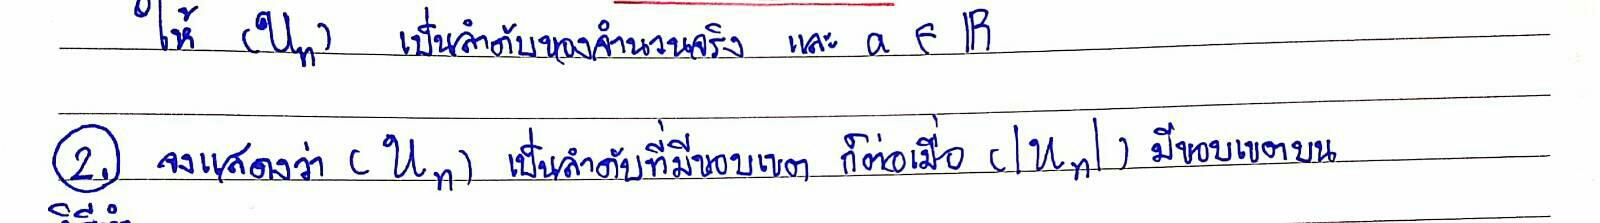 ให้ (Uₙ) เป็นลำดับของจำนวนจริง และ a ∈ ℝ
2. จงแสดงว่า (Uₙ) เป็นลำดับที่มีขอบเขต ก็ต่อเมื่อ (|Uₙ|) มีขอบเขตบน
วิธีทำ